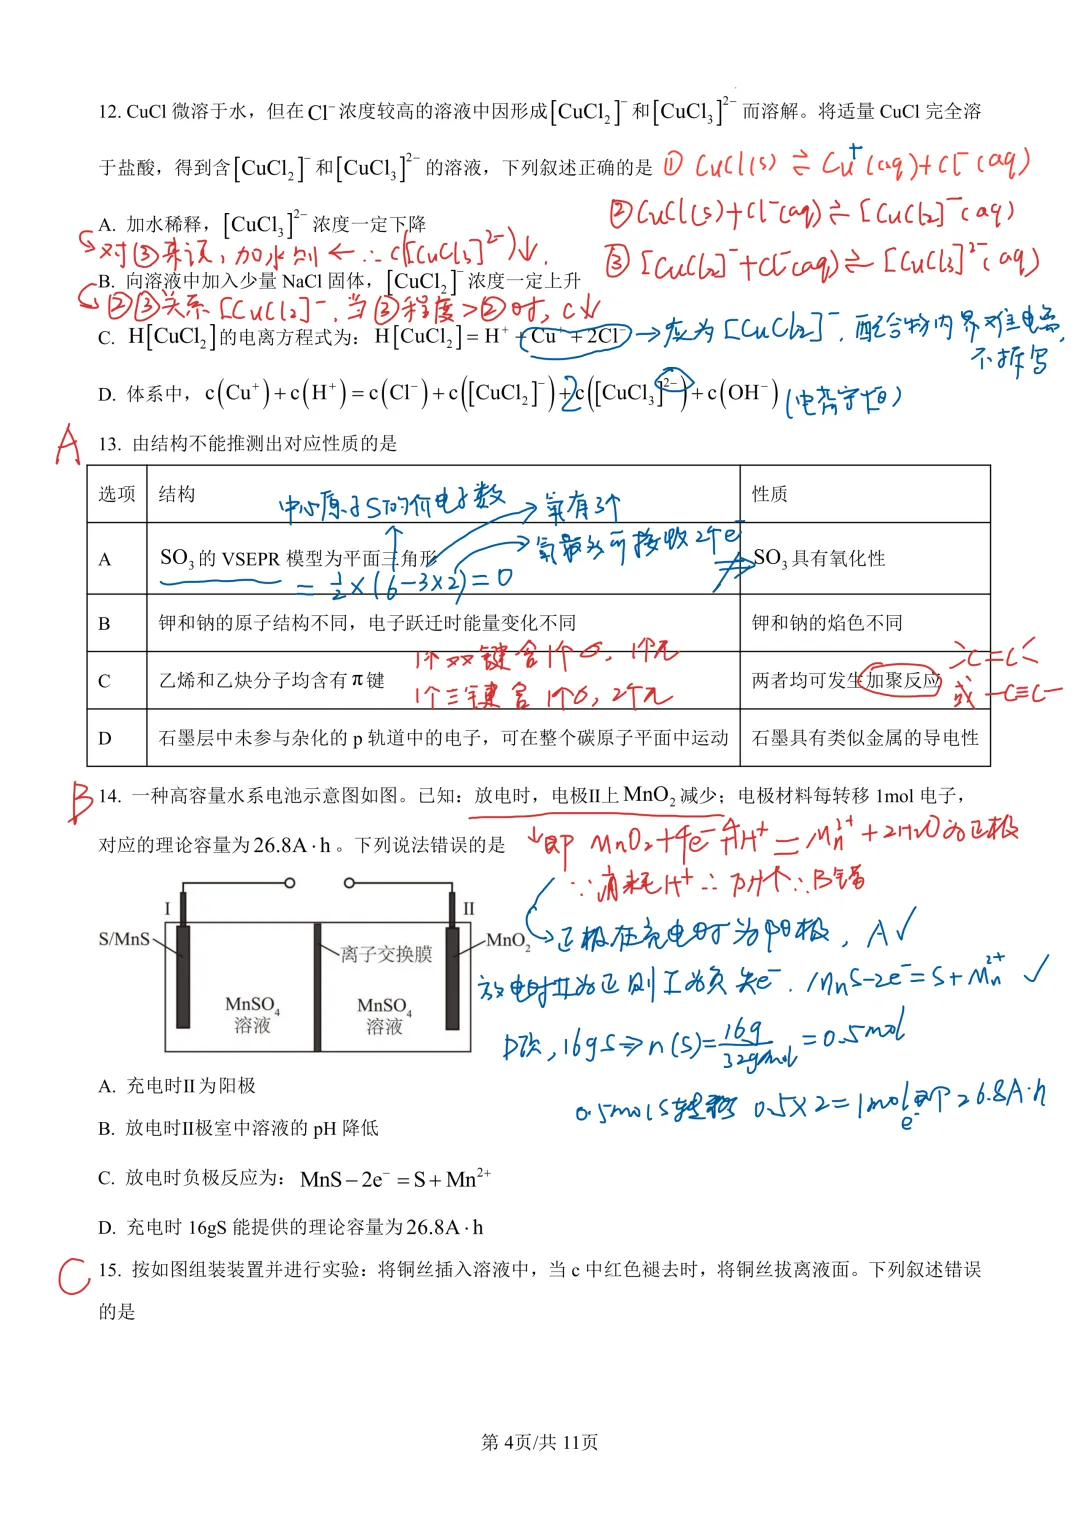 12. CuCl 微溶于水，但在 Cl⁻ 浓度较高的溶液中因形成[CuCl₂]⁻ 和[CuCl₃]²⁻ 而溶解。将适量 CuCl 完全溶
于盐酸，得到含[CuCl₂]⁻ 和[CuCl₃]²⁻ 的溶液，下列叙述正确的是 ① CuCl(s) ⇌ Cu⁺(aq)+Cl⁻(aq)
②CuCl(s)+Cl⁻(aq)⇌[CuCl₂]⁻(aq)
A. 加水稀释，[CuCl₃]²⁻ 浓度一定下降
↳对③来说，加水则← ∴c([CuCl₃]²⁻)↓.
③[CuCl₂]⁻+Cl⁻(aq)⇌[CuCl₃]²⁻(aq)
B. 向溶液中加入少量 NaCl 固体，[CuCl₂]⁻ 浓度一定上升
↳②③关系[CuCl₂]⁻. 当③程度>②时，c↓
C. H[CuCl₂]的电离方程式为：H[CuCl₂]=H⁺+Cu⁺+2Cl⁻ →应为[CuCl₂]⁻. 配合物内界难电离,
不拆写
D. 体系中，c(Cu⁺)+c(H⁺)=c(Cl⁻)+c([CuCl₂]⁻)+2c([CuCl₃]²⁻)+c(OH⁻) (电荷守恒)
A 13. 由结构不能推测出对应性质的是
选项 结构 性质
中心原子S的价电子数 氧有3个
氧最多可接收2个e⁻
A SO₃的 VSEPR 模型为平面三角形 ⇏ SO₃具有氧化性
= ½×(6-3×2)=0
B 钾和钠的原子结构不同，电子跃迁时能量变化不同 钾和钠的焰色不同
1个双键含1个σ，1个π
C 乙烯和乙炔分子均含有π键 两者均可发生加聚反应 >C=C<
1个三键含1个σ，2个π 或 -C≡C-
D 石墨层中未参与杂化的 p 轨道中的电子，可在整个碳原子平面中运动 石墨具有类似金属的导电性
B 14. 一种高容量水系电池示意图如图。已知：放电时，电极Ⅱ上MnO₂减少；电极材料每转移 1mol 电子，
对应的理论容量为26.8A·h。下列说法错误的是 ↓即 MnO₂+ e⁻+4H⁺=Mn²⁺+2H₂O为正极
∵消耗H⁺∴pH个∴B错
I II
S/MnS
离子交换膜
MnO₂
MnSO₄
溶液
MnSO₄
溶液
正极在充电时为阳极，A✓
放电时Ⅱ为正则Ⅰ为负失e⁻. MnS-2e⁻=S+Mn²⁺ ✓
D项，16gS⇒n(S)=16g/32g/mol=0.5mol
0.5molS转移 0.5×2=1mol e⁻即26.8A·h
A. 充电时Ⅱ为阳极
B. 放电时Ⅱ极室中溶液的 pH 降低
C. 放电时负极反应为：MnS-2e⁻=S+Mn²⁺
D. 充电时 16gS 能提供的理论容量为26.8A·h
C 15. 按如图组装装置并进行实验：将铜丝插入溶液中，当 c 中红色褪去时，将铜丝拔离液面。下列叙述错误
的是
第 4页/共 11页